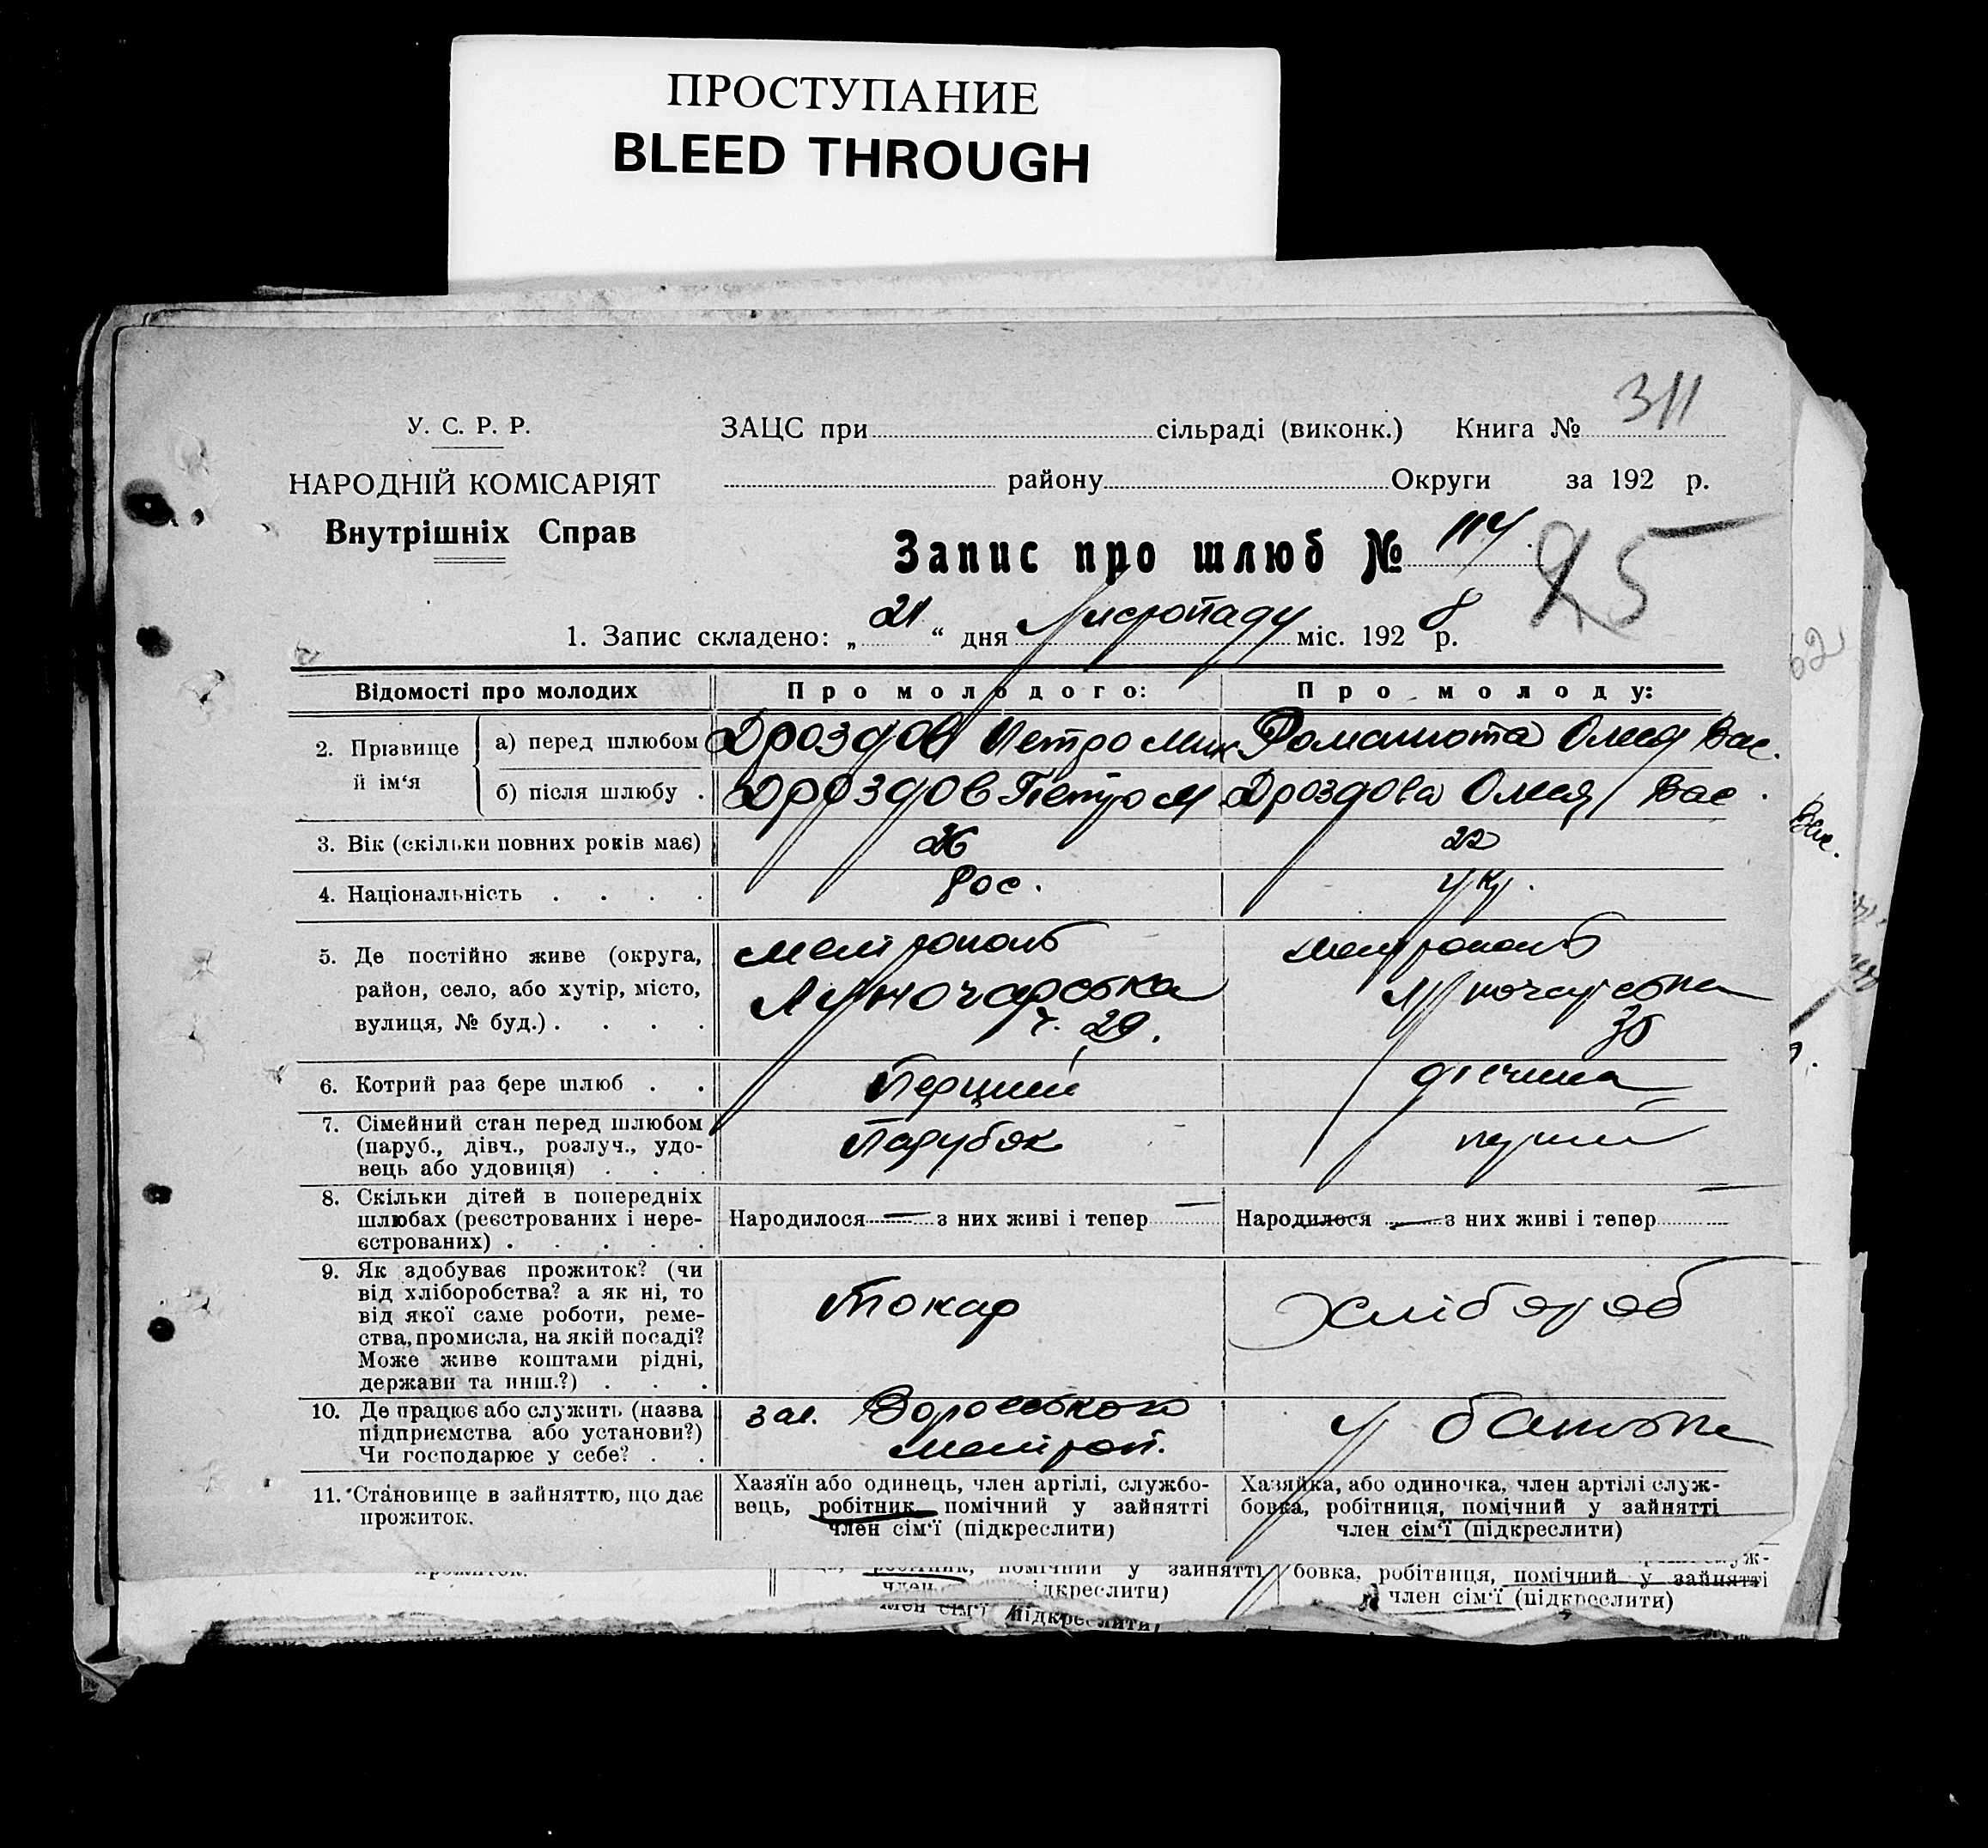 ПРОСТУПАНИЕ
BLEED THROUGH
311
У. С. Р. Р.
ЗАЦС при сільраді (виконк.) Книга №
НАРОДНІЙ КОМІСАРІЯТ
району Округи за 192 р.
Внутрішніх Справ
Запис про шлюб № 114
25
1. Запис складено: „21“ дня Листопаду міс. 1928 р.
Відомості про молодих
Про молодого:
Про молоду:
2. Прізвище й ім‘я
а) перед шлюбом
Дроздов Петро Мик
Олися Вас.
б) після шлюбу .
Дроздов Петро М
Дроздова Олися Вас.
3. Вік (скільки повних років має)
26
22
4. Національність . . . .
Рос.
Укр.
5. Де постійно живе (округа,
район, село, або хутір, місто,
вулиця, № буд.) . . . .
Мелітополь
Луночарська
ч. 29.
Мелітополь
Луночарська
30
6. Котрий раз бере шлюб . .
Перший
дівчина
7. Сімейний стан перед шлюбом
(паруб., дівч., розлуч., удо-
вець або удовиця) . . .
Парубок
перший
8. Скільки дітей в попередніх
шлюбах (реєстрованих і нере-
єстрованих) . . . . .
Народилося — з них живі і тепер —
Народилося — з них живі і тепер —
9. Як здобуває прожиток? (чи
від хліборобства? а як ні, то
від якої саме роботи, реме-
ства, промисла, на якій посаді?
Може живе коштами рідні,
держави та инш.?) . . .
Токар
Хлібороб
10. Де працює або служить (назва
підприємства або установи?)
Чи господарює у себе? . .
зав. Воровського
Меліտոп.
У батька
11. Становище в зайняттю, що дає
прожиток.
Хазяїн або одинець, член аргілі, службо-
вець, робітник помічний у зайнятті
член сім‘ї (підкреслити)
Хазяйка, або одиночка, член артілі служ-
бовка, робітниця, помічний у зайнятті
член сім‘ї (підкреслити)
помічний у зайнятті
бовка, робітниця, помічний у зайнятті
член сім‘ї (підкреслити)
62
Вас.